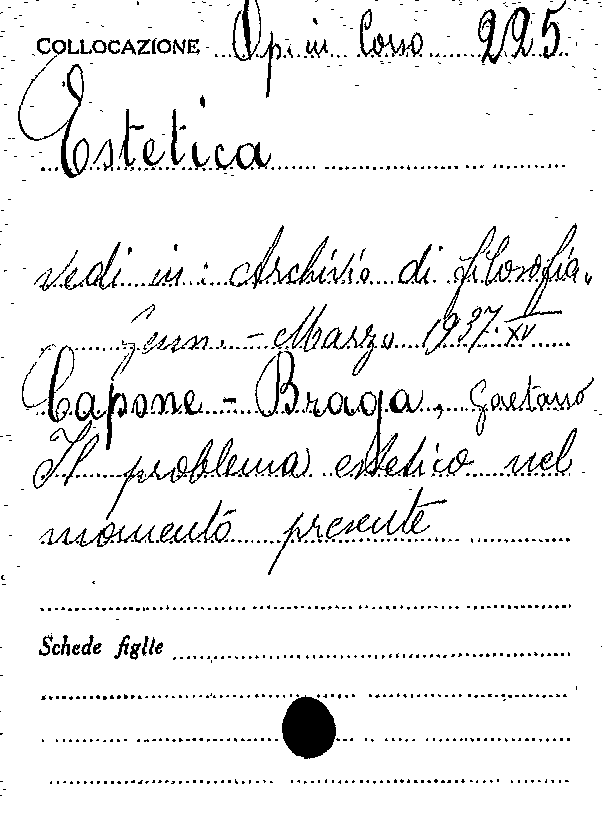 COLLOCAZIONE Op. in Corso 225
Estetica
vedi in: Archivio di filosofia.
Genn. - Marzo 1937. XV
Capone - Braga, Gaetano
Il problema estetico nel
momento presente
Schede figlie